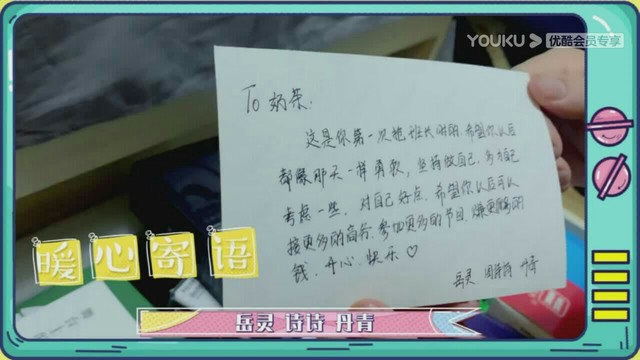 YOUKU 优酷会员专享
To 奶茶:
这是你第一次抱班长时的 希望你以后
都像那天一样勇敢, 坚持做自己, 多为自己
考虑一些, 对自己好点. 希望你以后可以
接更多的商务, 参加更多的节目, 赚更多的
钱, 开心、快乐♡
岳灵 诗诗 丹青
暖心寄语
岳灵 诗诗 丹青